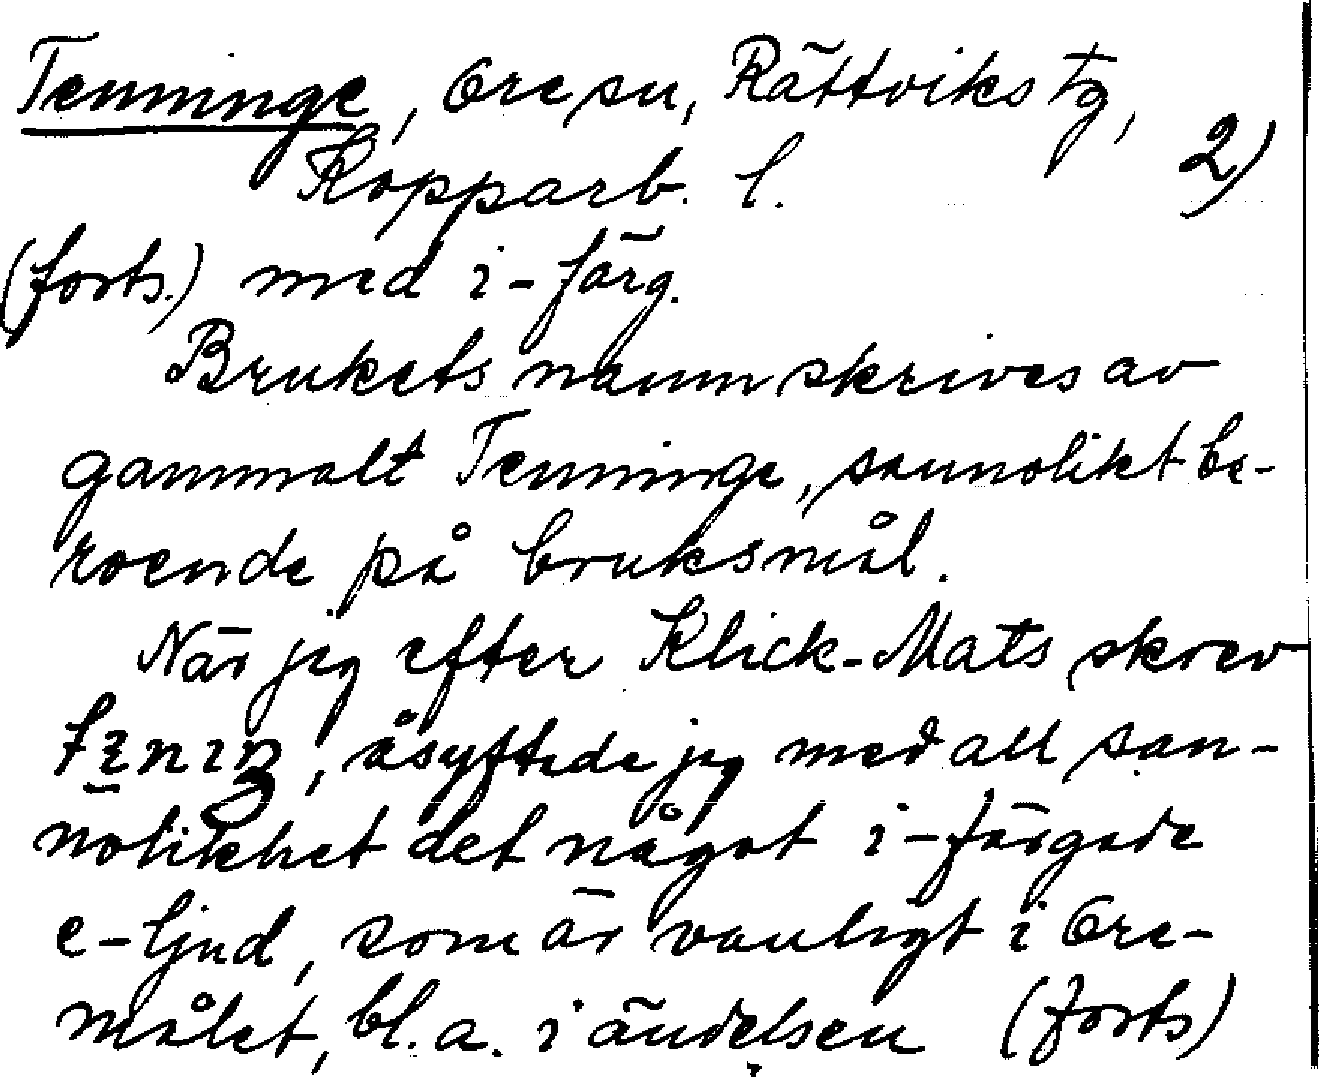 Tenninge, Ore sn, Rättviks tg,
Kopparb. l. 2)
(forts.) med i-färg.
Brukets namn skrives av
gammalt Tenninge, sannolikt be-
roende på bruksmål.
När jag efter Klick-Mats skrev
, åsyftade jag med all san-
nolikhet det något i-färgade
e-ljud, som är vanligt i Ore-
målet, bl.a. i ändelsen (forts)